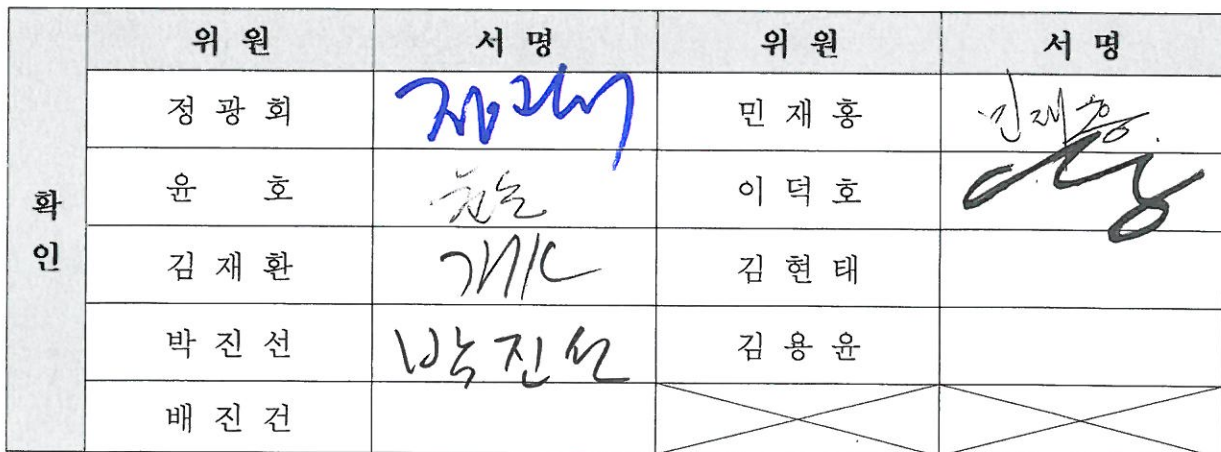 위 원 서 명 위 원 서 명
확 인
정 광 회 민 재 홍 민재홍
윤 호 이 덕 호
김 재 환 김 현 태
박 진 선 박진선 김 용 윤
배 진 건